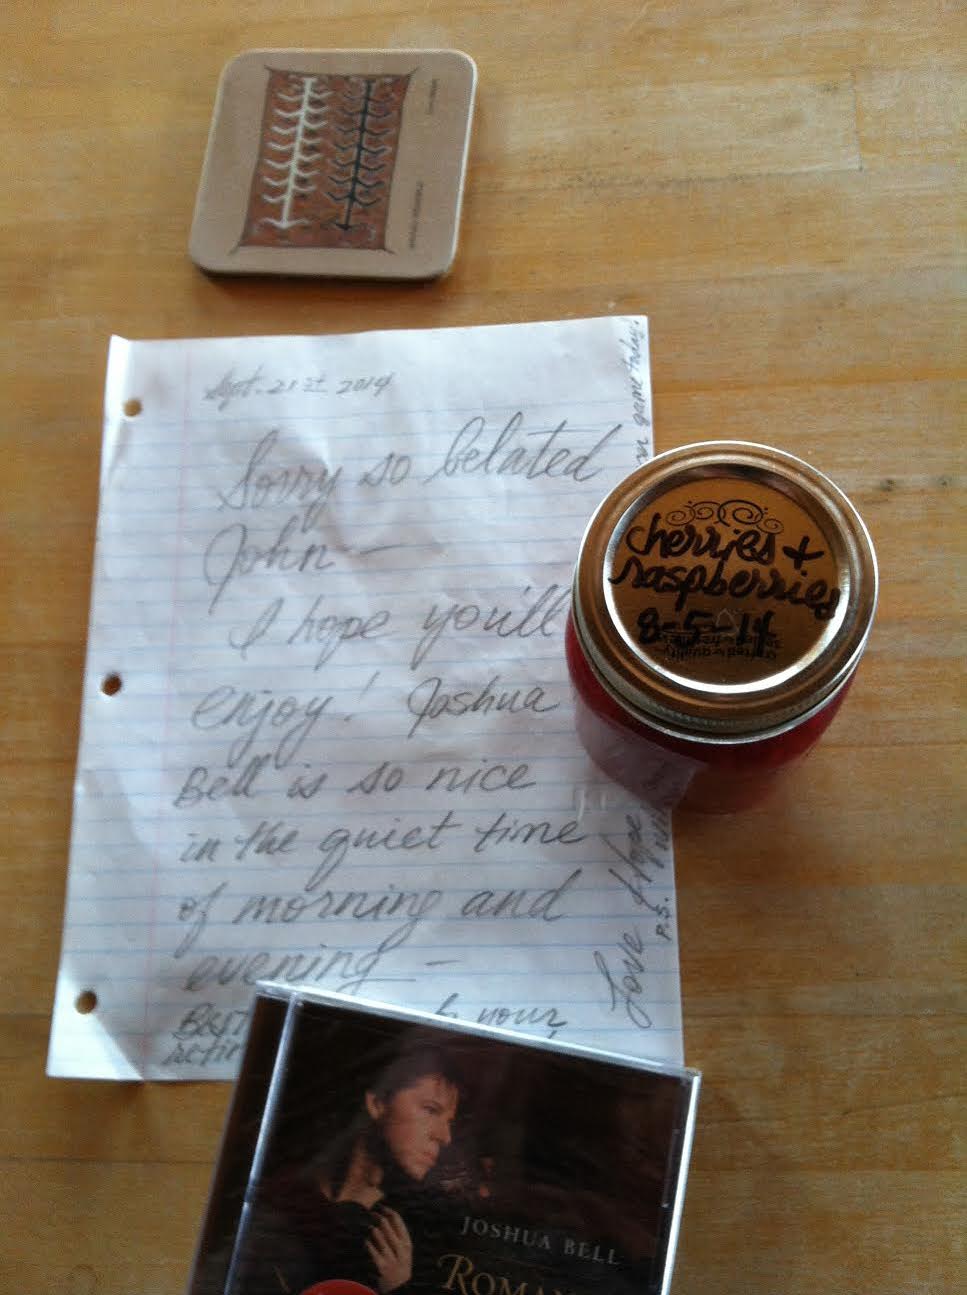 Sept. 21st 2014
Sorry so belated
John—
I hope you'll
enjoy! Joshua
Bell is so nice
in the quiet time
of morning and
evening —
your
Love Hope
P.S.
game today.
cherries +
raspberries
8-5-14
JOSHUA BELL